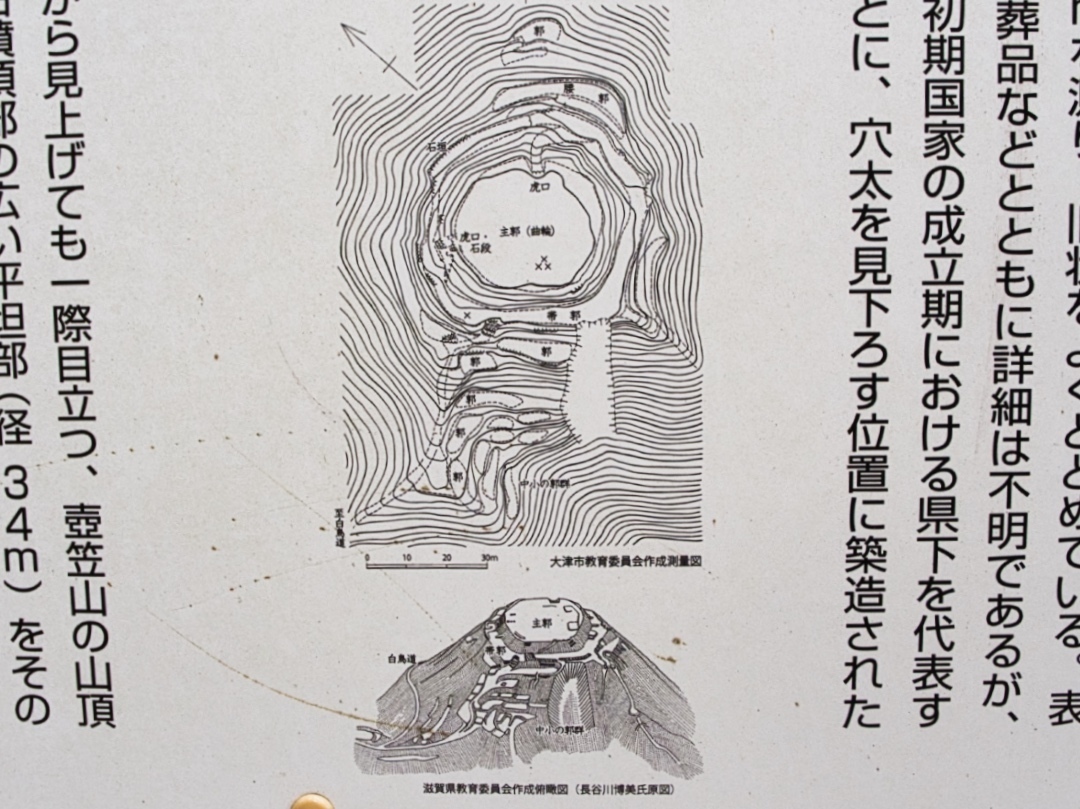 てい
旧状をよくとどめている。表
葬品などとともに詳細は不明であるが、
初期国家の成立期における県下を代表す
とに、穴太を見下ろす位置に築造された
郭
腰郭
石垣
虎口
主郭（曲輪）
虎口・
石段
帯郭
郭
郭
郭
郭
郭
中小の郭群
至白鳥道
0 10 20 30m
大津市教育委員会作成測量図
主郭
帯郭
白鳥道
中小の郭群
滋賀県教育委員会作成俯瞰図（長谷川博美氏原図）
から見上げても一際目立つ、壺笠山の山頂
墳頂部の広い平坦部（径34m）をその